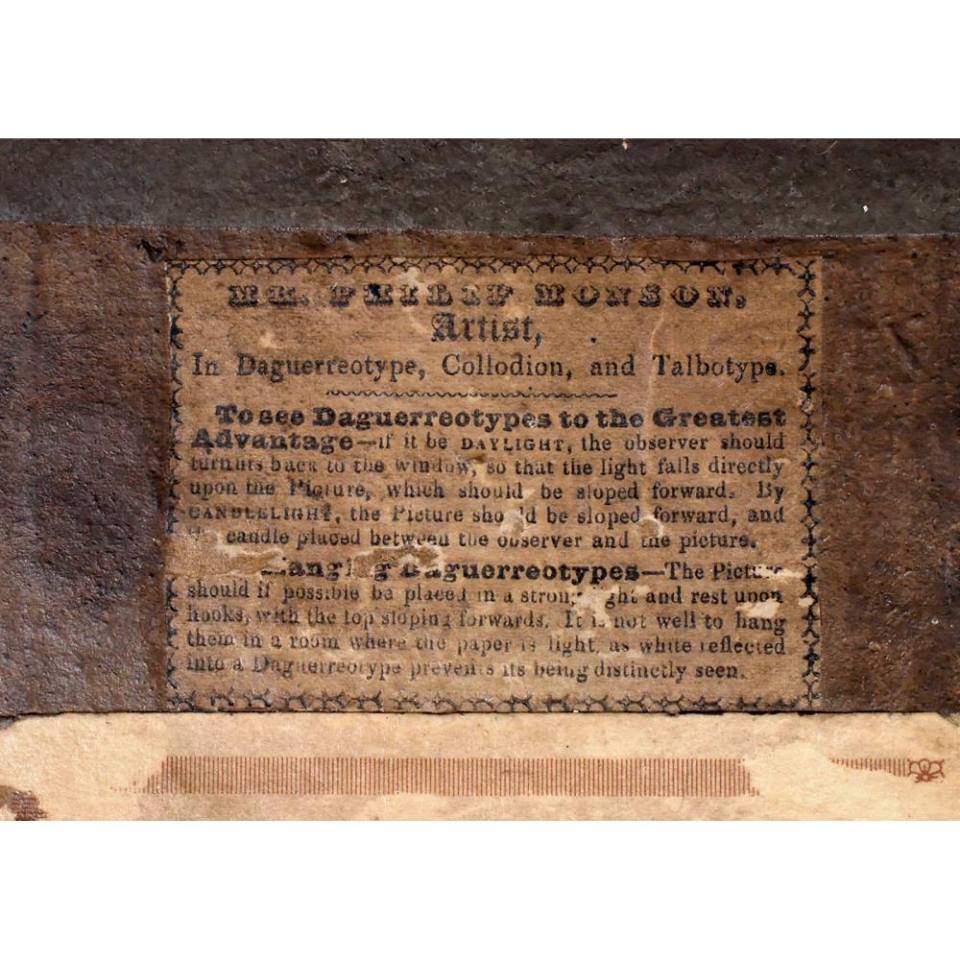 MR. PHILIP MONSON,
Artist,
In Daguerreotype, Collodion, and Talbotype.
To see Daguerreotypes to the Greatest
Advantage—if it be DAYLIGHT, the observer should
turn his back to the window, so that the light falls directly
upon the Picture, which should be sloped forward. By
CANDLELIGHT, the Picture should be sloped forward, and
candle placed between the observer and the picture.
Hanging Daguerreotypes—The Picture
should if possible be placed in a strong light and rest upon
hooks, with the top sloping forwards. It is not well to hang
them in a room where the paper is light, as white reflected
into a Daguerreotype prevents its being distinctly seen.